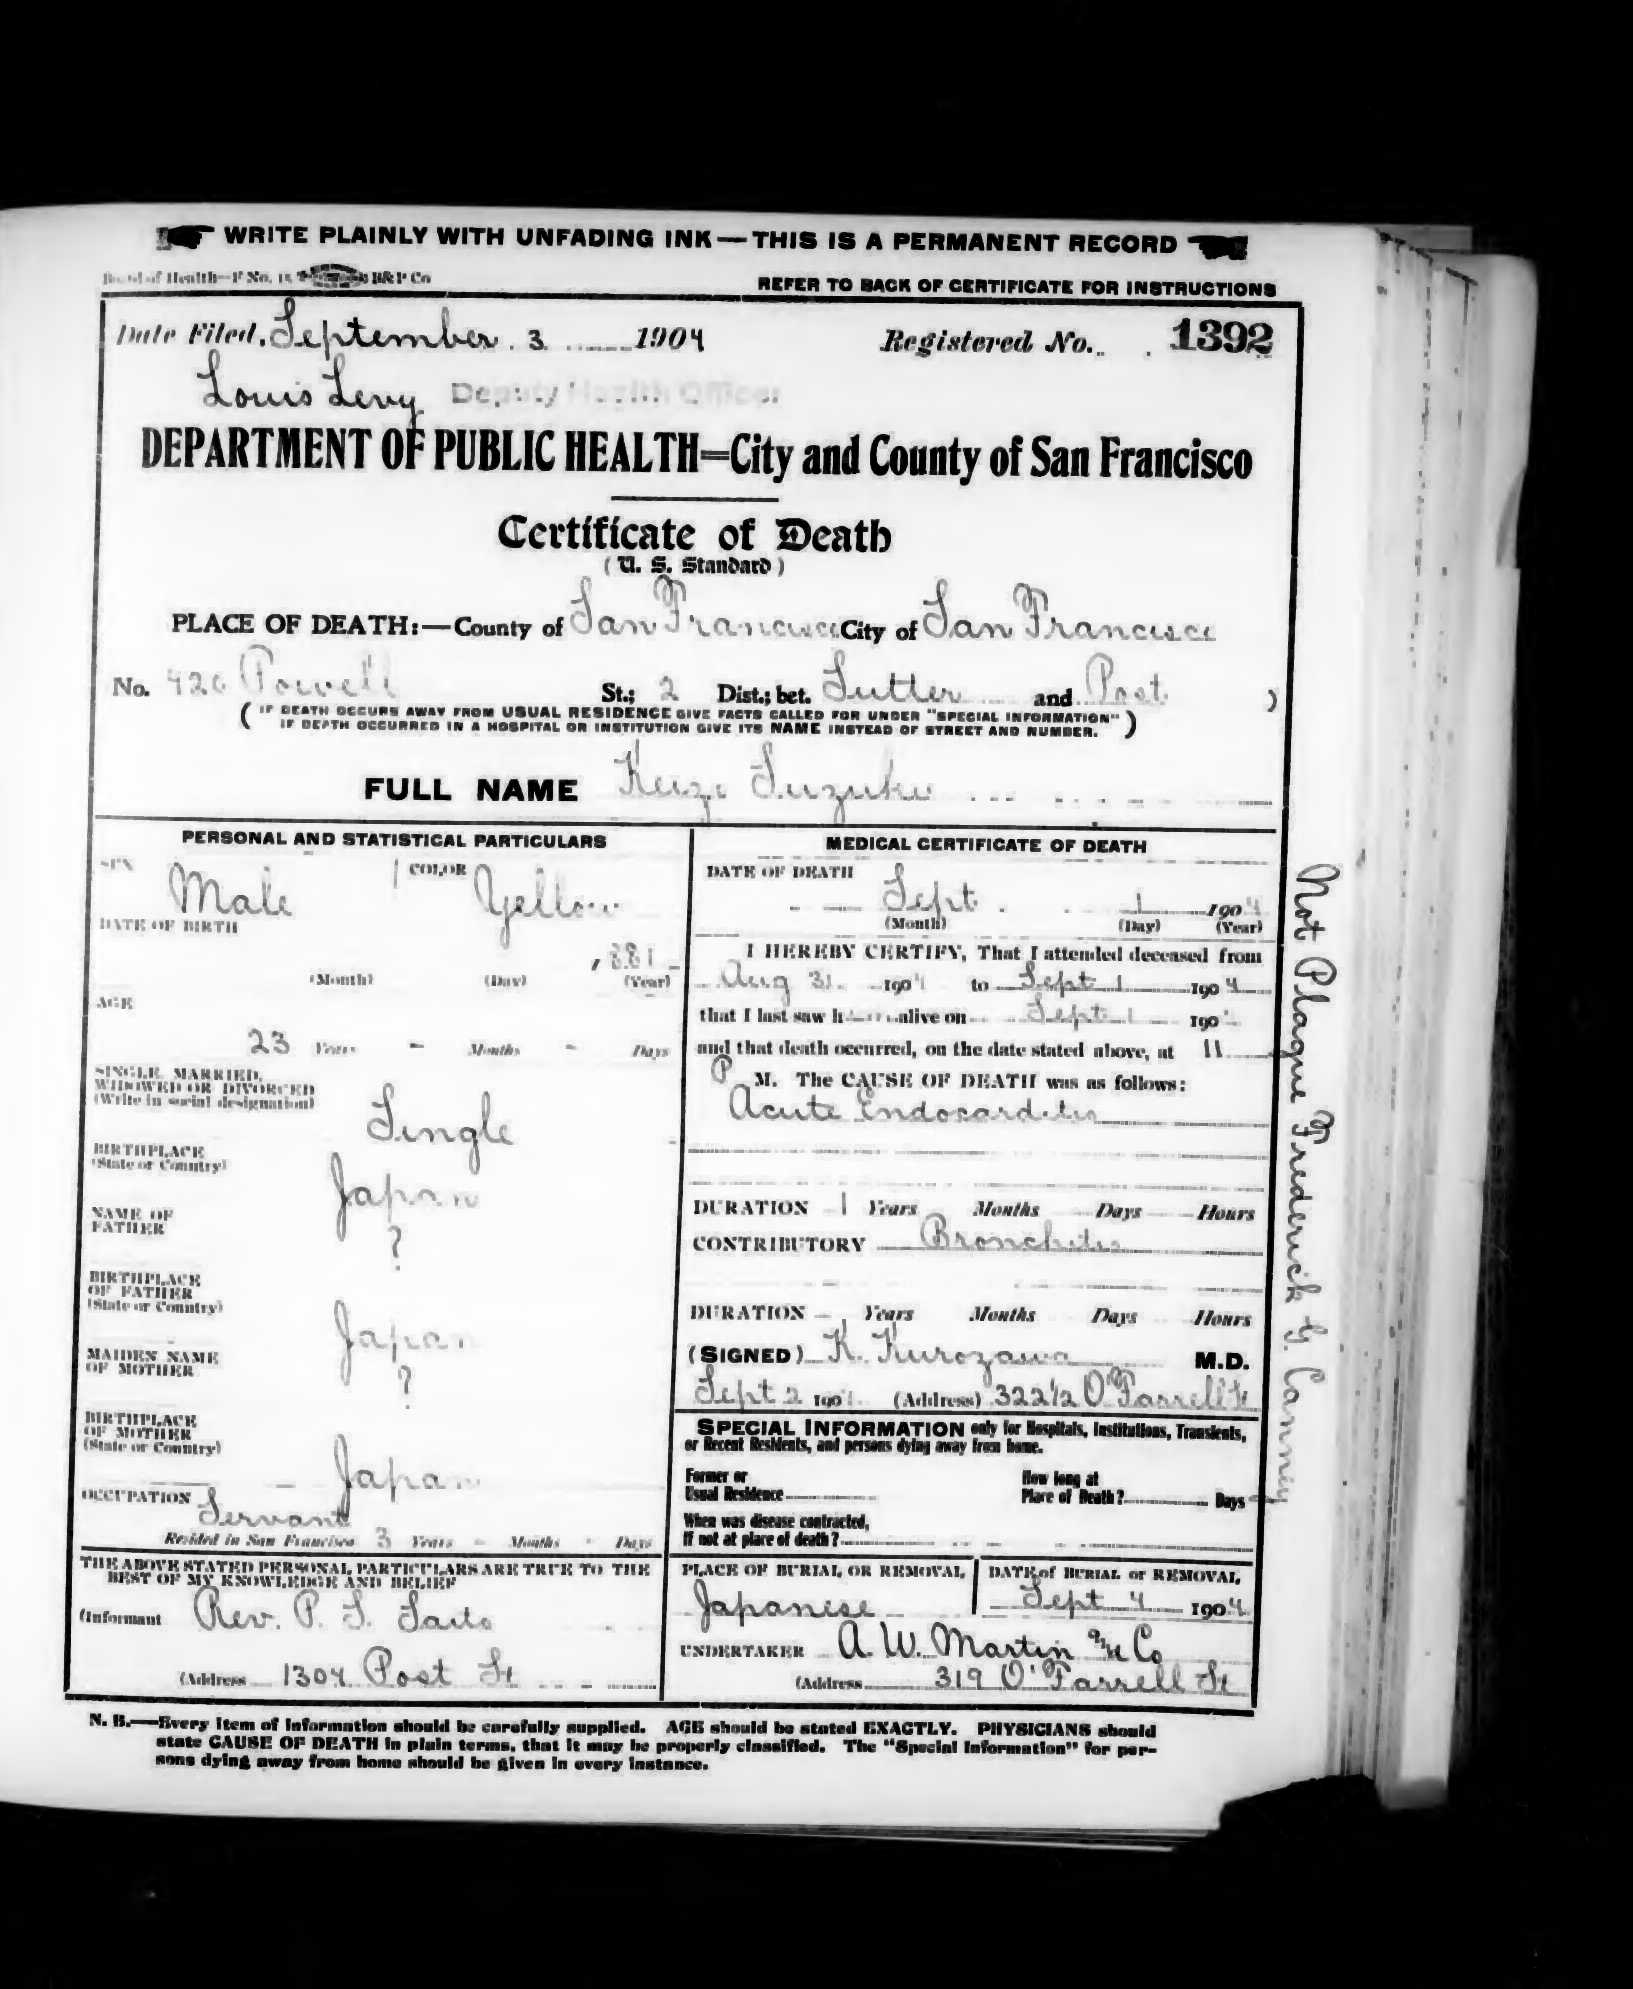 WRITE PLAINLY WITH UNFADING INK—THIS IS A PERMANENT RECORD
Board of Health—F No. 15 B&P Co
REFER TO BACK OF CERTIFICATE FOR INSTRUCTIONS
Date Filed, September 3 1904 Registered No. 1392
Louis Levy Deputy Health Officer
DEPARTMENT OF PUBLIC HEALTH=City and County of San Francisco
Certificate of Death
(U. S. Standard)
PLACE OF DEATH:—County of San Francisco City of San Francisco
No. 420 Powell St.; 2 Dist.; bet. Sutter and Post )
( IF DEATH OCCURS AWAY FROM USUAL RESIDENCE GIVE FACTS CALLED FOR UNDER "SPECIAL INFORMATION"
IF DEATH OCCURRED IN A HOSPITAL OR INSTITUTION GIVE ITS NAME INSTEAD OF STREET AND NUMBER. )
FULL NAME Suzuki
PERSONAL AND STATISTICAL PARTICULARS
SEX Male COLOR Yellow
DATE OF BIRTH
1881
(Month) (Day) (Year)
AGE
23 Years - Months - Days
SINGLE, MARRIED,
WIDOWED OR DIVORCED
(Write in social designation)
Single
BIRTHPLACE
(State or Country)
Japan
NAME OF
FATHER
?
BIRTHPLACE
OF FATHER
(State or Country)
Japan
MAIDEN NAME
OF MOTHER
?
BIRTHPLACE
OF MOTHER
(State or Country)
Japan
OCCUPATION
Servant
Resided in San Francisco 3 Years - Months - Days
THE ABOVE STATED PERSONAL PARTICULARS ARE TRUE TO THE
BEST OF MY KNOWLEDGE AND BELIEF
(Informant Rev. P. S. Saito
(Address 1304 Post St
MEDICAL CERTIFICATE OF DEATH
DATE OF DEATH
Sept. 1 1904
(Month) (Day) (Year)
I HEREBY CERTIFY, That I attended deceased from
Aug 31 1904 to Sept 1 1904
that I last saw h alive on Sept 1 1904
and that death occurred, on the date stated above, at 11
P M. The CAUSE OF DEATH was as follows:
Acute Endocarditis
DURATION 1 Years Months Days Hours
CONTRIBUTORY Bronchitis
DURATION Years Months Days Hours
(SIGNED) K. Kurozawa M.D.
Sept 2 1904 (Address) 322½ O'Farrell St
SPECIAL INFORMATION only for Hospitals, Institutions, Transients,
or Recent Residents, and persons dying away from home.
Former or
Usual Residence
How long at
Place of Death? Days
When was disease contracted,
If not at place of death?
PLACE OF BURIAL OR REMOVAL
Japanese
DATE of BURIAL or REMOVAL
Sept 4 1904
UNDERTAKER A. W. Martin & Co
(Address 319 O'Farrell St
N. B.—Every item of information should be carefully supplied. AGE should be stated EXACTLY. PHYSICIANS should
state CAUSE OF DEATH in plain terms, that it may be properly classified. The "Special Information" for per-
sons dying away from home should be given in every instance.
Not Plague Frederick G. Canney